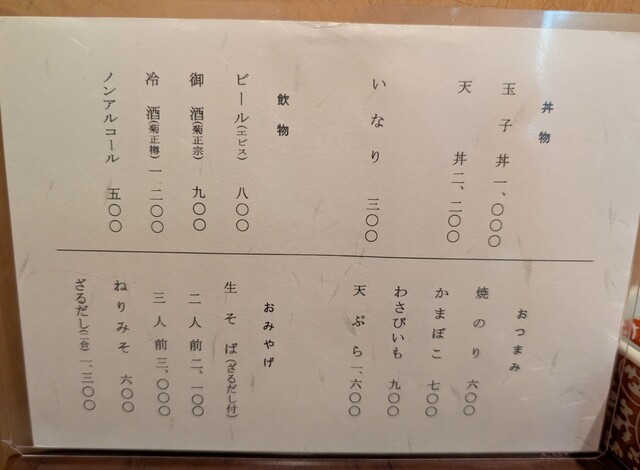 丼物
玉子丼 一、〇〇〇
天丼 二、二〇〇
いなり 三〇〇
飲物
ビール(エビス) 八〇〇
御酒(菊正宗) 九〇〇
冷酒(菊正樽) 一、二〇〇
ノンアルコール 五〇〇
おつまみ
焼のり 六〇〇
かまぼこ 七〇〇
わさびいも 九〇〇
天ぷら 一、六〇〇
おみやげ
生そば(ざるだし付)
二人前 二、一〇〇
三人前 三、〇〇〇
ねりみそ 六〇〇
ざるだし(二合) 一、三〇〇